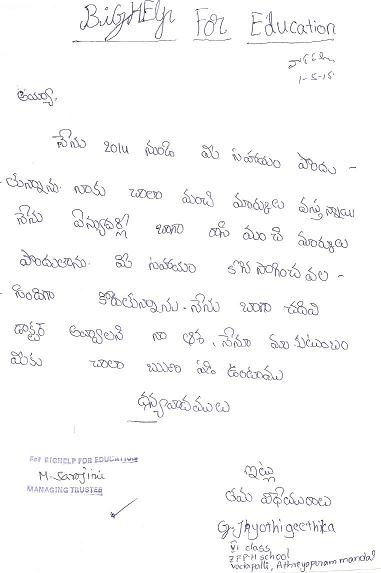 BIGHElp For Education
1-5-15
అయ్యా,
నేను 2014 నుండి మీ సహాయం పొందు -
తున్నాను. నాకు చాలా మంచి మార్కులు వస్తున్నాయి
నేను బాగా రాసి మంచి మార్కులు
పొందుతాను. మీ సహాయం కొనసాగించవల -
సిందిగా కోరుతున్నాను. నేను బాగా చదివి
డాక్టర్ అవ్వాలని నా ఆశ. నేను మా కుటుంబం
మీకు చాలా ఋణ పడి ఉంటాము
ధన్యవాదములు
For BIGHELP FOR EDUCATION
M. Sarojini
MANAGING TRUSTEE
ఇట్లు
తమ విధేయురాలు
G. Jhyothigeethika
VI class
Z P P H school
Vadapalli, Athreyapuram mandal